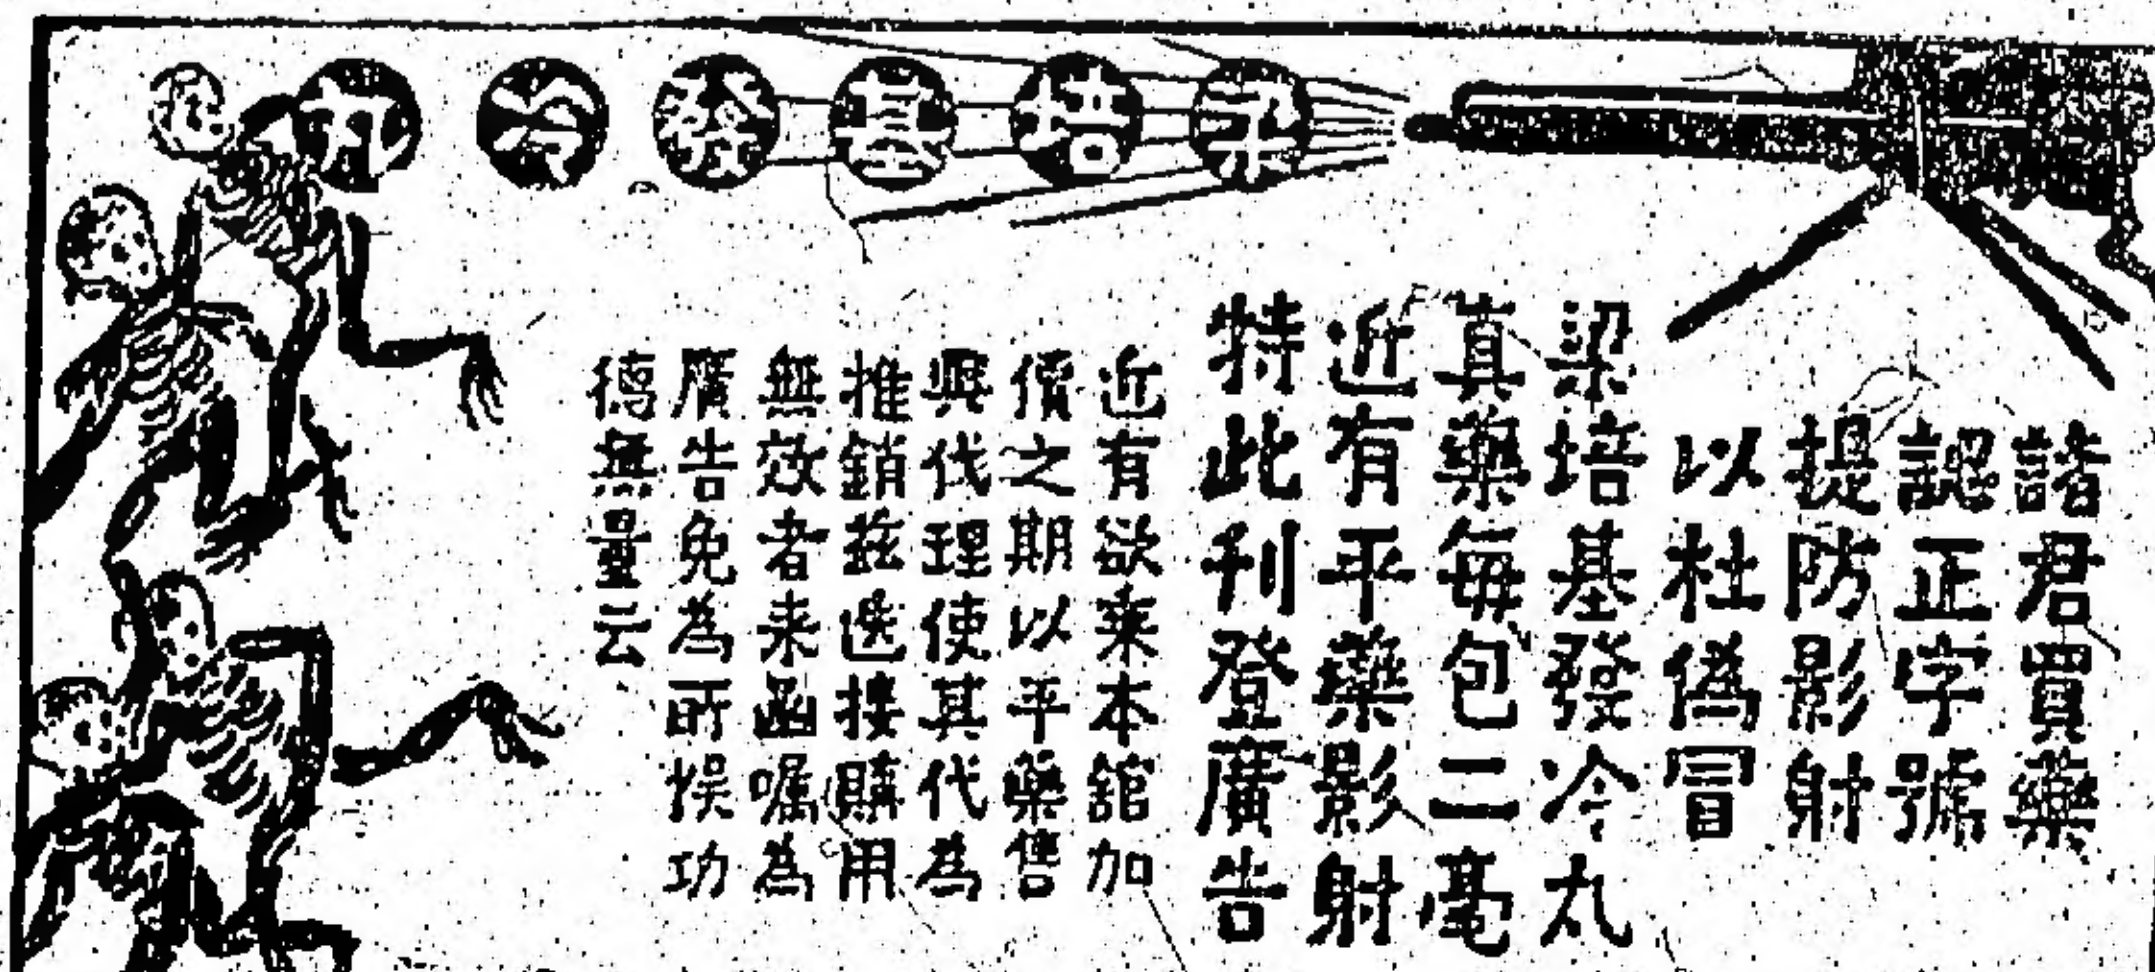 梁培基發冷丸
諸君買藥
認正字號
提防影射
以杜偽冒
梁培基發冷丸
真藥每包二毫
近有平藥影射
特此刊登廣告
近有欲乘本舘加
價之期以平藥售
與代理使其代為
推銷茲迭接購用
無效者来函嘱為
廣告免為所悞功
德無量云